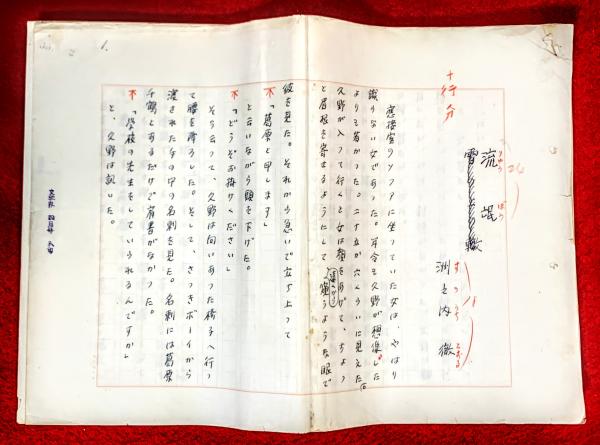 十行分
流氓
りゅう
ぼう
24
雪の上の轍
洲之内徹
すのうち
とおる
応接室のソファに坐っていた女は、やはり
識らない女であった。年令も久野が想像した
よりも若かった。二十五か六くらいに見えた。
久野が入って行くと女は顔をあげて、ちょっ
と眉根を寄せるようにして窺うような眼で
彼を見た。それから急いで立ち上って
「葛原と申します」
と云いながら頭を下げた。
「どうぞお掛けください」
そう云って、久野は向いあった椅子へ行っ
て腰を降ろした。そして、さっきボーイから
渡された手の中の名刺を見た。名刺には葛原
千鶴とあるだけで肩書がなかった。
「学校の先生をしていられるんですか」
と、久野は訊いた。
1.